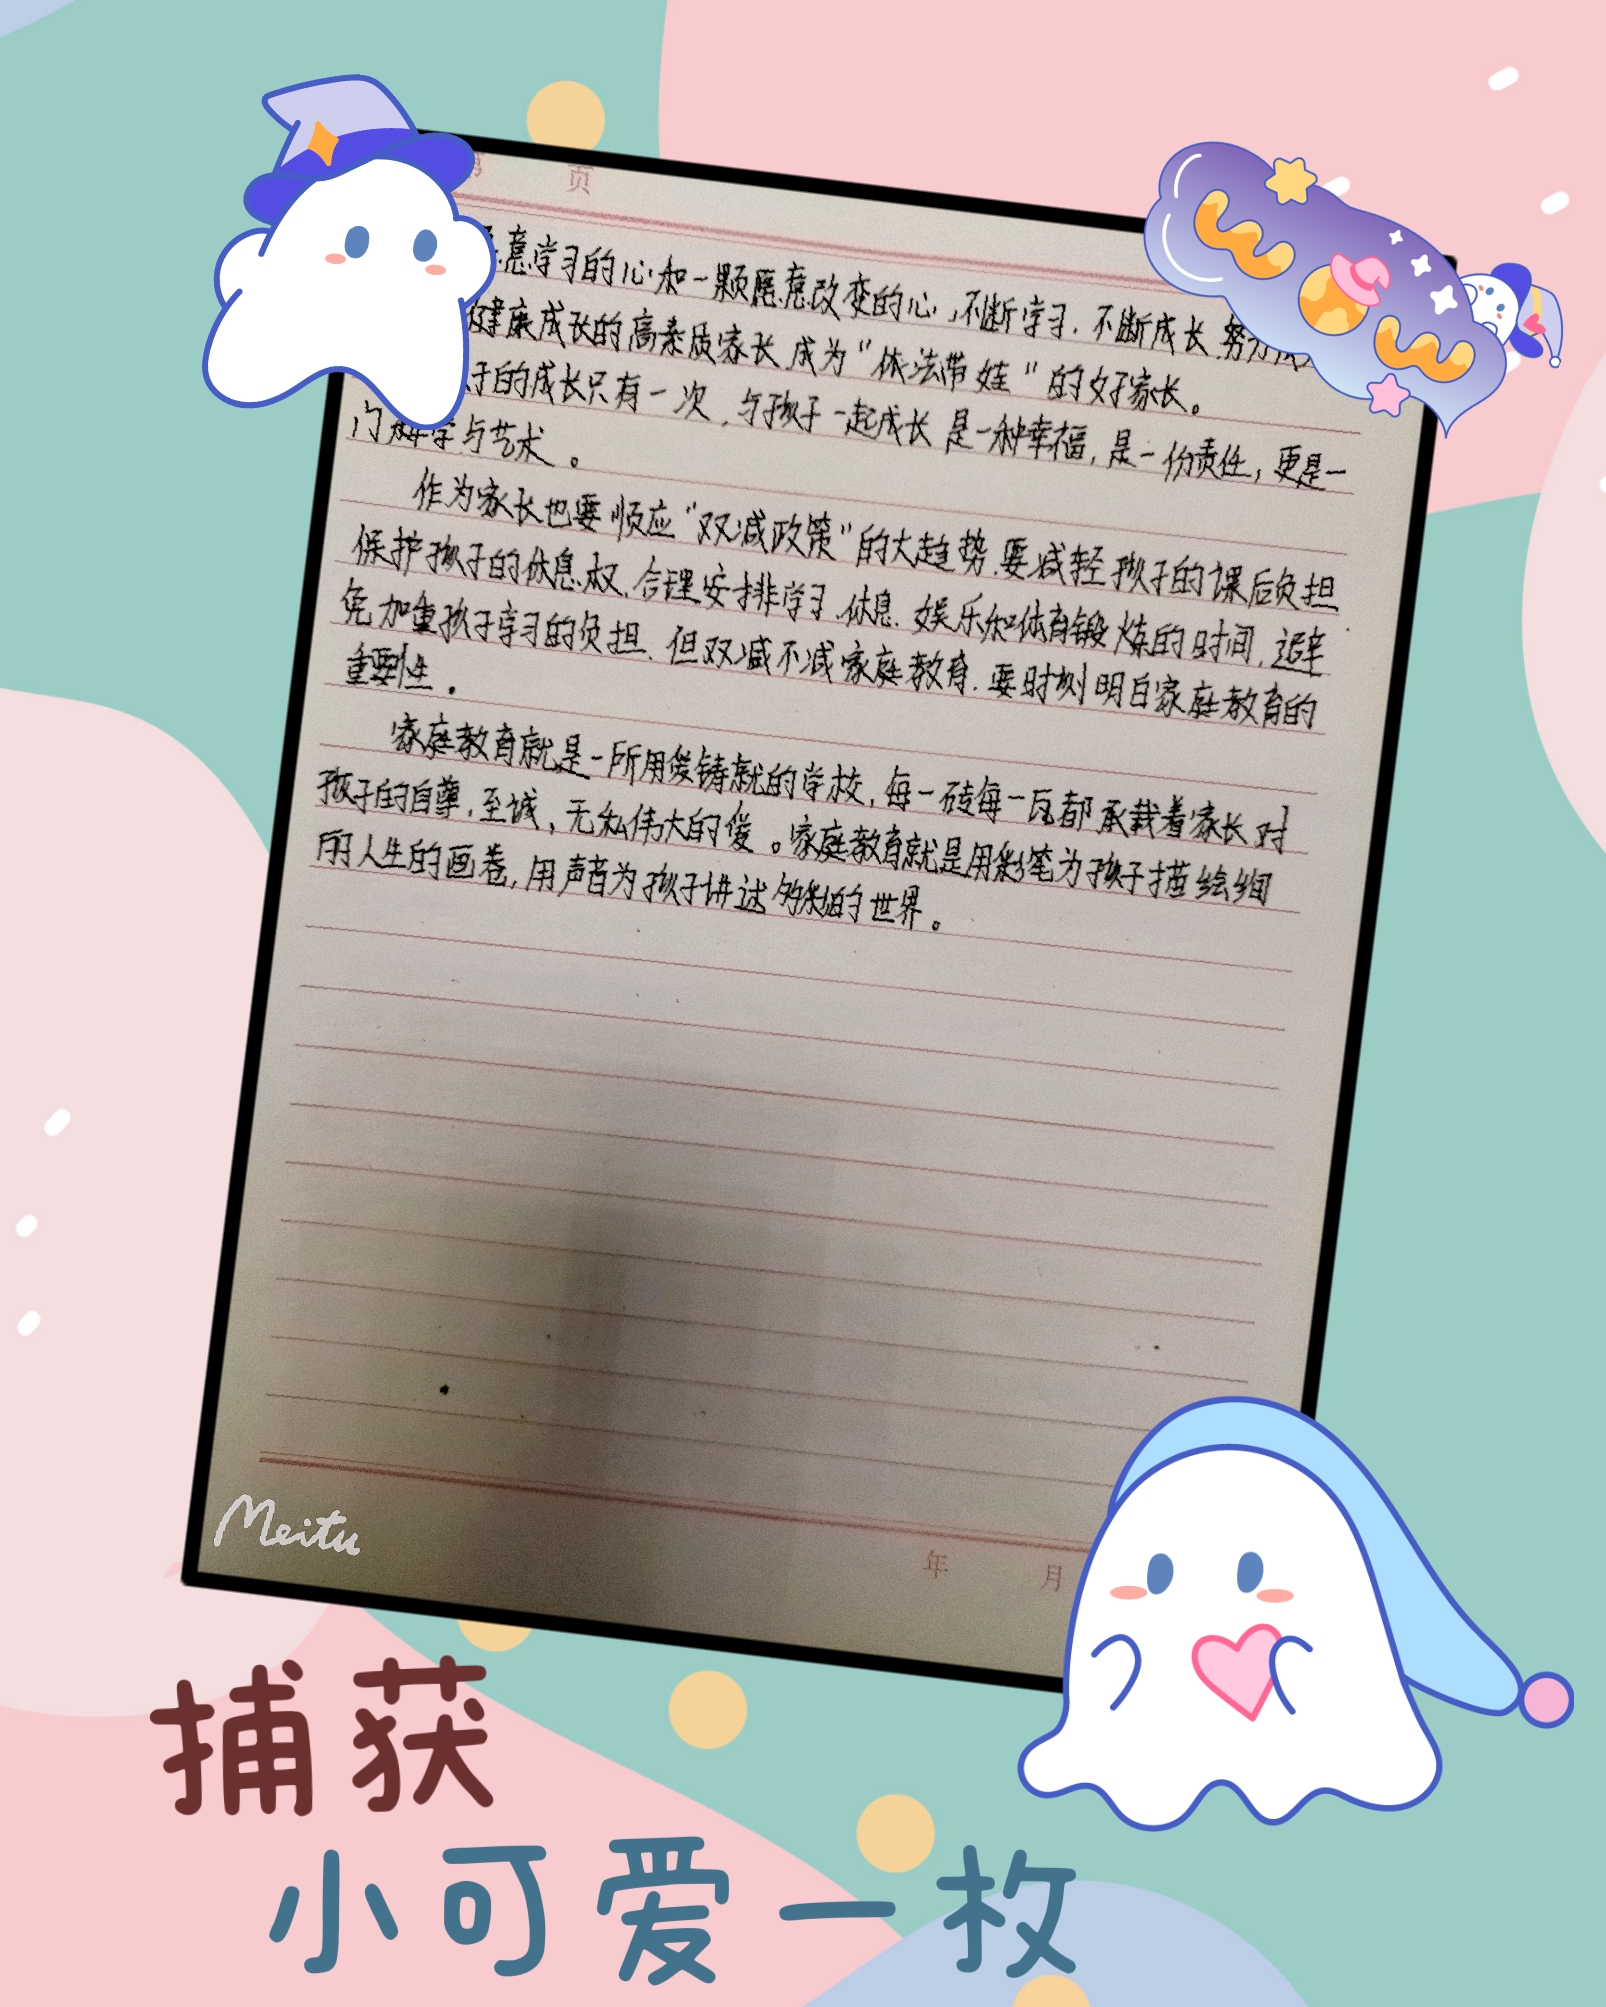 页
愿意学习的心和一颗愿意改变的心,不断学习.不断成长.努力成
健康成长的高素质家长成为"依法带娃"的好家长。
子的成长只有一次,与孩子一起成长是一种幸福,是一份责任,更是一
门 学与艺术。
作为家长也要顺应"双减政策"的大趋势.要减轻孩子的课后负担
保护孩子的休息权.合理安排学习.休息.娱乐和体育锻炼的时间.避
免加重孩子学习的负担.但双减不减家庭教育.要时刻明白家庭教育的
重要性.
家庭教育就是一所用爱铸就的学校,每一砖每一瓦都承载着家长对
孩子的自尊.至诚,无私伟大的爱。家庭教育就是用彩笔为孩子描绘绚
丽人生的画卷,用声音为孩子讲述 的世界。
Meitu
年 月
捕获
小可爱一枚